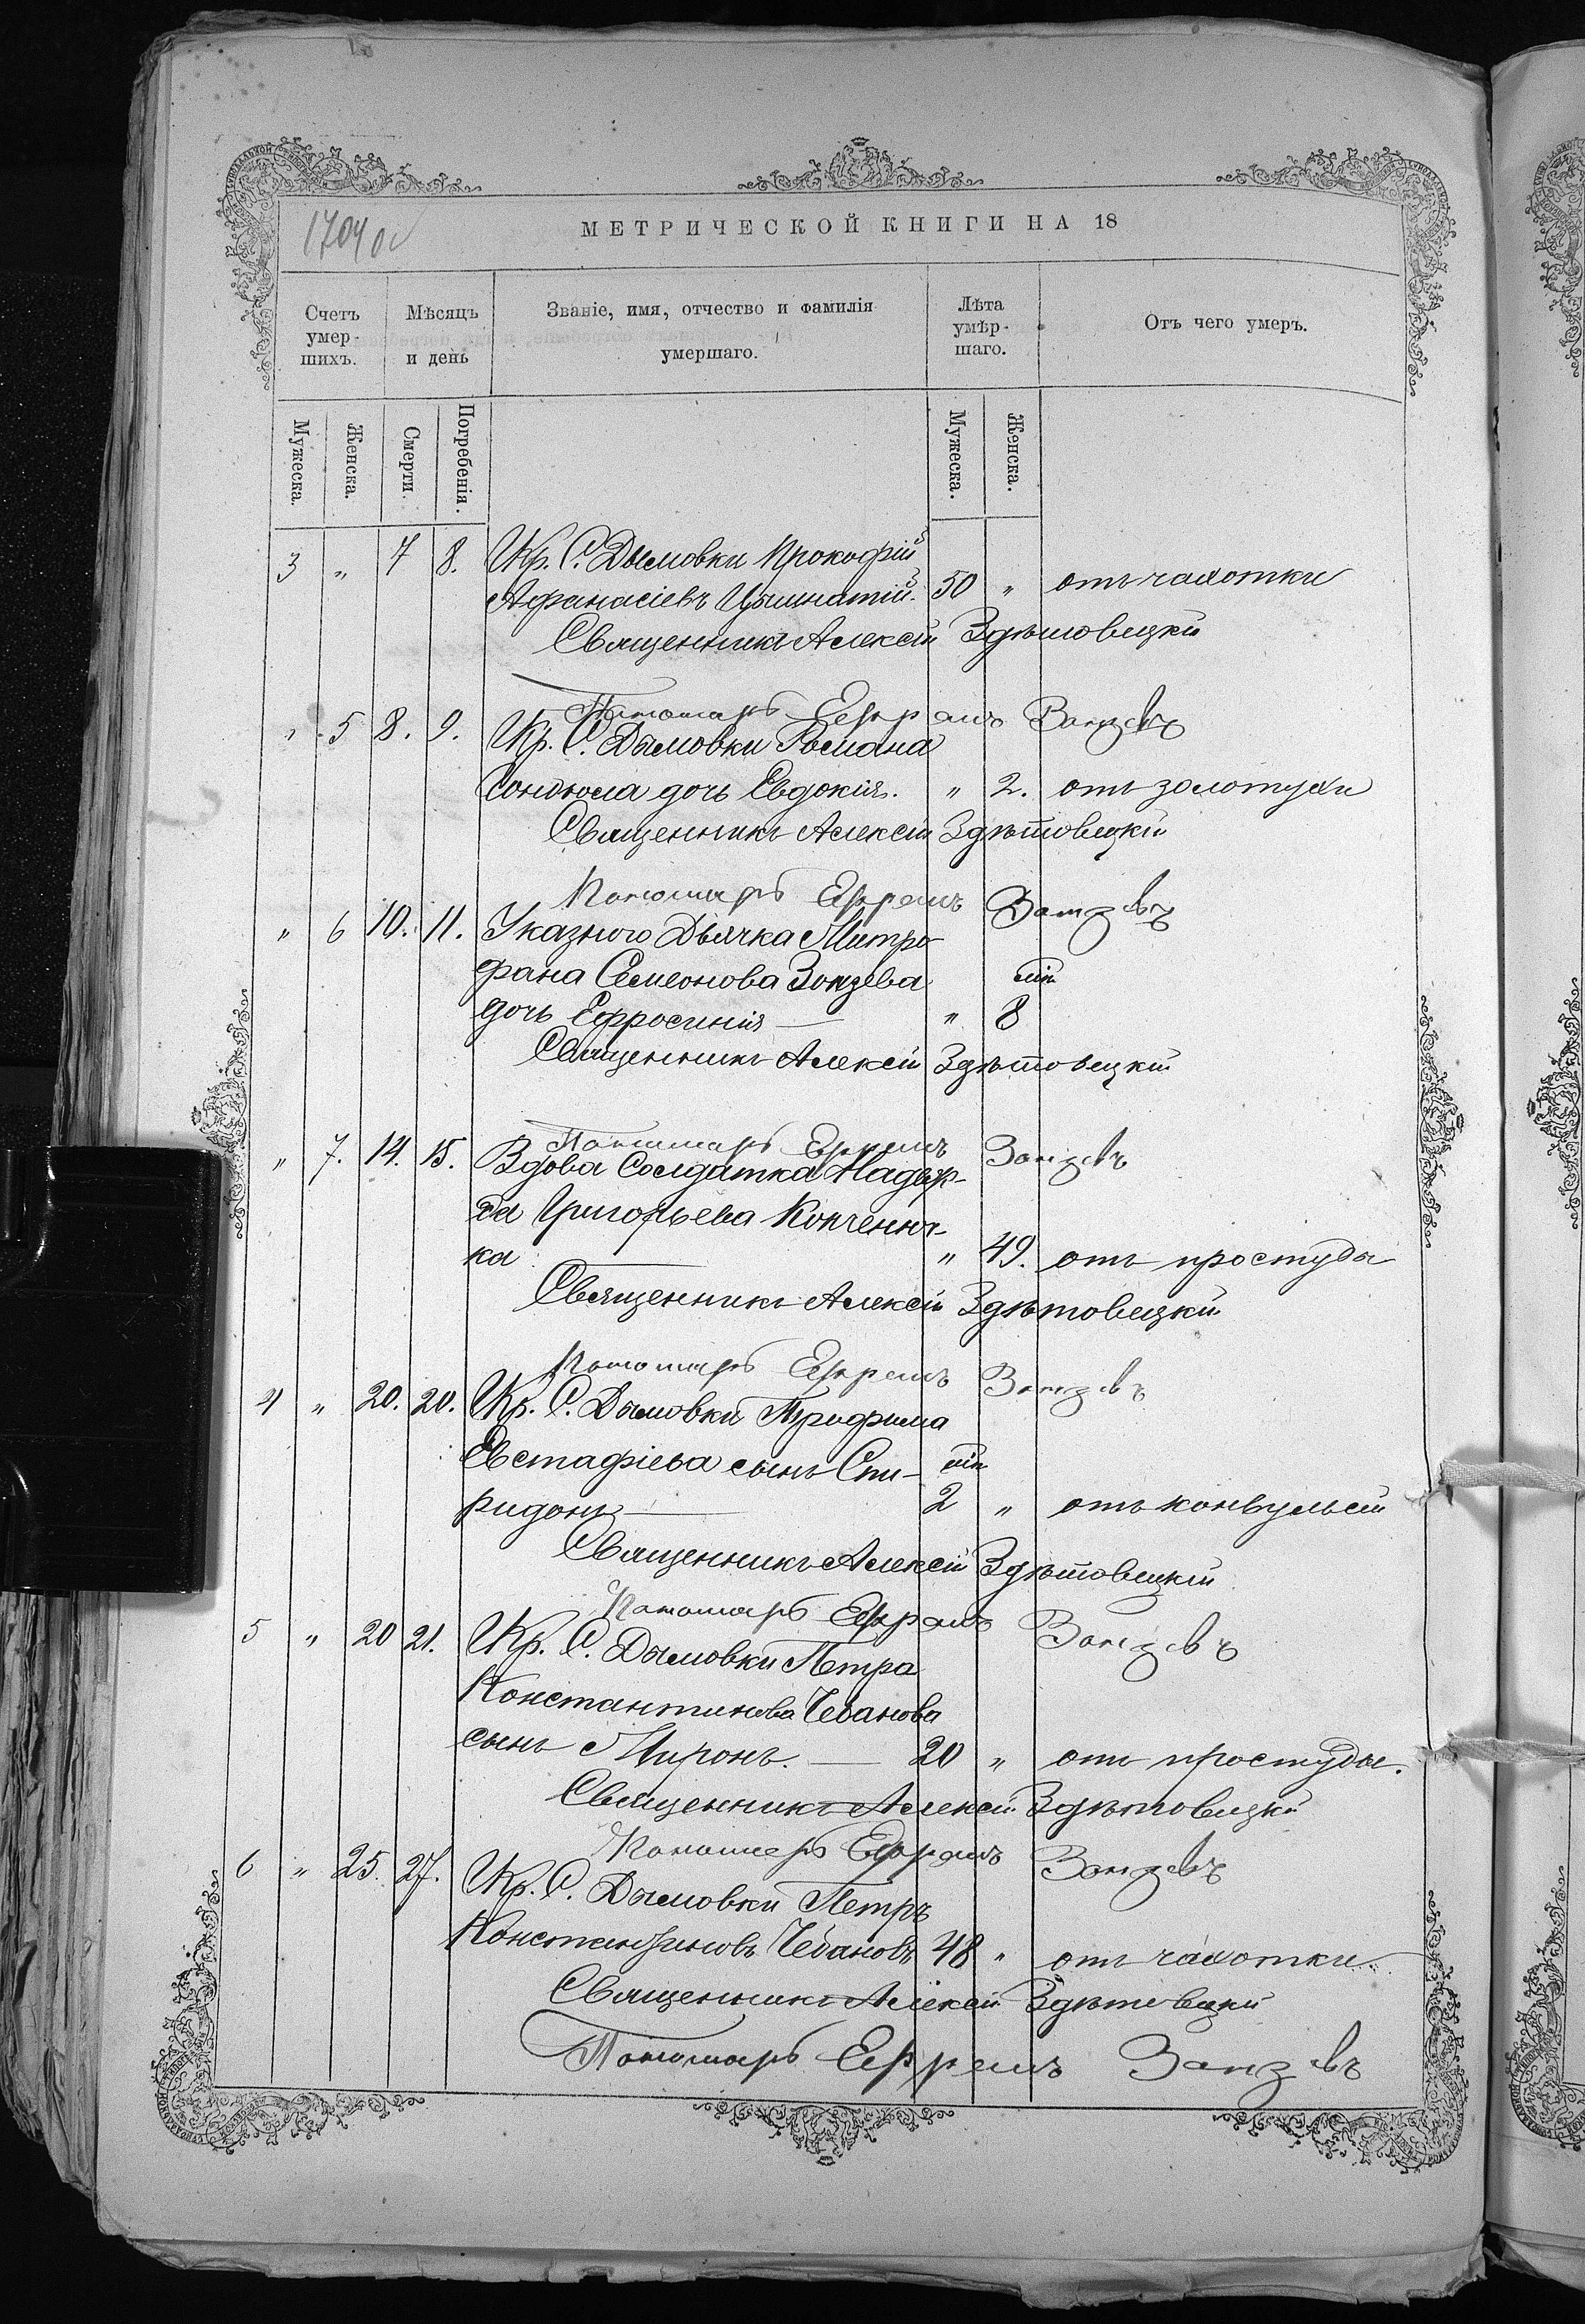 1704 об
МЕТРИЧЕСКОЙ КНИГИ НА 18
Счетъ умер-шихъ.
Мѣсяцъ и день
Званіе, имя, отчество и фамилія умершаго.
Лѣта умѣр-шаго.
Отъ чего умеръ.
Мужеска.
Женска.
Смерти.
Погребенія.
Мужеска.
Женска.
3 " 7 8. Кр. С. Дымовки Прокофій
Афанасіевъ 50 " отъ чахотки
Священникъ Алексѣй Здѣтовецкій
Пономарь Ефремъ Занзевъ
" 5 8. 9. Кр. С. Дымовки Романа
дочь Евдокія. " 2. отъ золотухи
Священникъ Алексѣй Здѣтовецкій
Пономарь Ефремъ Занзевъ
" 6 10. 11. Указного Дьячка Митро-
фана Семеонова Зонзева
дочь Ефросинія " 8
Священникъ Алексѣй Здѣтовецкій
Пономарь Ефремъ Занзевъ
" 7. 14. 15. Вдова Солдатка Надеж-
да Григорьева
ка " 49. отъ простуды
Священникъ Алексѣй Здѣтовецкій
Пономарь Ефремъ Занзевъ
4 " 20. 20. Кр. С. Дымовки Трофима
Евстафіева сынъ Спи-
ридонъ 2 " отъ конвульсій
Священникъ Алексѣй Здѣтовецкій
Пономарь Ефремъ Занзевъ
5 " 20 21. Кр. С. Дымовки Петра
Константинова Чебанова
сынъ Миронъ. 20 " отъ простуды.
Священникъ Алексѣй Здѣтовецкій
Пономарь Ефремъ Занзевъ
6 " 25. 27. Кр. С. Дымовки Петръ
Константиновъ Чебановъ 48 " отъ чахотки.
Священникъ Алексѣй Здѣтовецкій
Пономарь Ефремъ Занзевъ